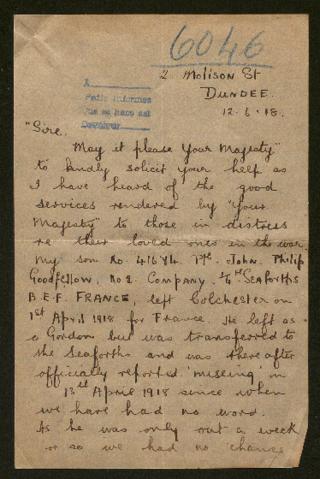 6046
2 Molison St
DUNDEE.
12-6-18.
A
Pedir informes
que se hará así
"Sire,
May it please Your Majesty"
to kindly solicit your help as
I have heard of the good
services rendered by "Your
Majesty" to those in distress
re their loved ones in the war.
My son No. Pte. John. Philip
Goodfellow, No 2. Company. Seaforths
B.E.F. FRANCE, left Colchester on
1st April 1918 for France. He left as
a Gordon but was transferred to
the Seaforths and was thereafter
officially reported "missing" in
13th April 1918 since when
we have had no word.
As he was only out a week
or so we had no chance